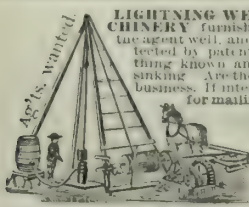 Ag'ts. wanted.
LIGHTNING WE
CHINERY furnish
the agent well, and
tected by paten
thing known an
sinking Are th
business. If inte
for maili